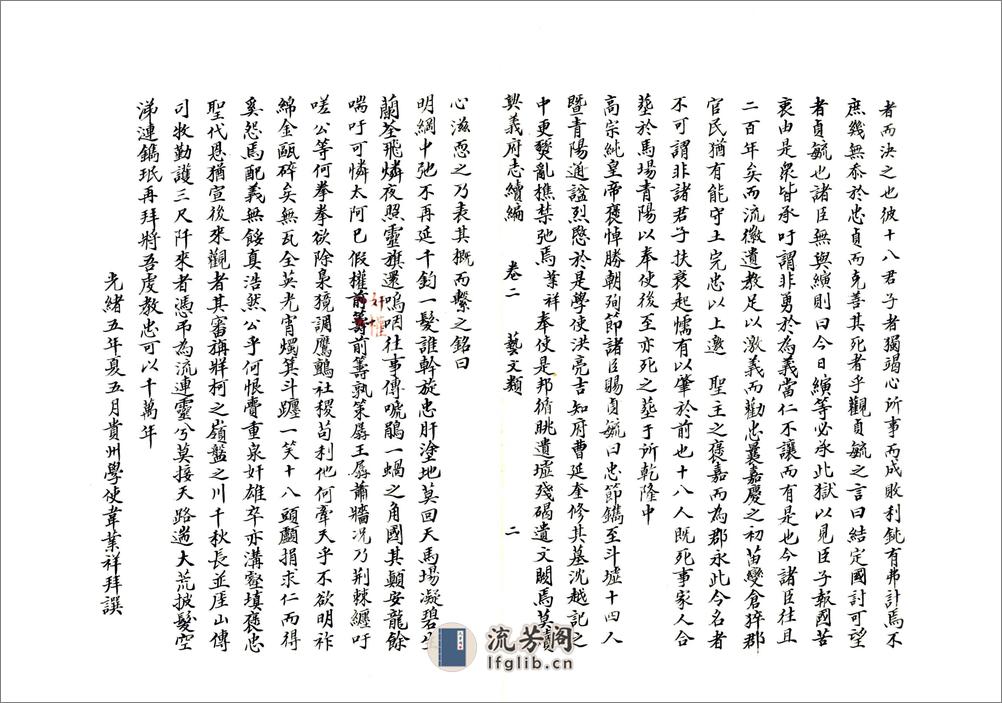 者而決之也彼十八君子者獨竭心所事而成敗利鈍有弗計焉不
庶幾無忝於忠貞而克善其死者乎觀貞毓之言曰結定國討可望
者貞毓也諸臣無與縯則曰今日縯等必承此獄以見臣子報國苦
衷由是眾皆承吁謂非勇於為義當仁不讓而有是也今諸臣往且
二百年矣而流徽遺教足以激義而勸忠曩嘉慶之初苗變倉猝郡
官民猶有能守土完忠以上邀 聖主之褒嘉而為郡永此今名者
不可謂非諸君子扶衰起懦有以肇於前也十八人既死事家人合
葬於馬場青陽以奉使後至亦死之葬于所乾隆中
高宗純皇帝褒悼勝朝殉節諸臣賜貞毓曰忠節鐫至斗墟十四人
暨青陽通諡烈愍於是學使洪亮吉知府曹延奎修其墓沈越記之
中更變亂樵禁弛焉業祥奉使是邦循眺遺墟殘碣遺文闕焉莫
興義府志續編 卷二 藝文類 二
心滋恧之乃表其概而繫之銘曰
明綱中弛不再延千鈞一髮誰斡旋忠肝塗地莫回天馬場凝碧
蘭荃飛燐夜照靈旗還嗚咽往事傳唬鵑一蝸之角國其顛安龍餘
喘吁可憐太阿已假權前籌前籌孰策孱王孱蕭牆況乃荊棘纏吁
奸權
嗟公等何拳拳欲除梟獍調鷹鸇社稷苟利他何牽天乎不欲明祚
綿金甌碎矣無瓦全英光宵燭箕斗躔一笑十八頭顱捐求仁而得
奚怨焉配義無餒真浩然公乎何恨賷重泉奸雄卒亦溝壑填褒忠
聖代恩猶宣後來觀者其審旃牂柯之嶺盤之川千秋長並厓山傳
司牧勤護三尺阡來者憑弔為流連靈兮莫接天路遄大荒披髮空
涕漣鐫珉再拜將吾虔教忠可以千萬年
光緒五年夏五月貴州學使韋業祥拜譔
流芳閣
lfglib.cn